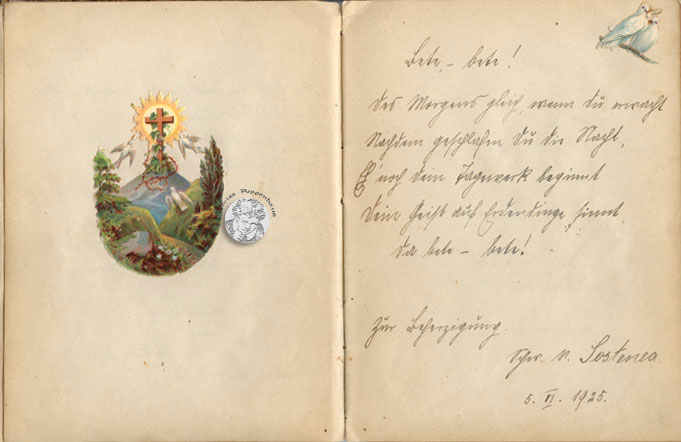 Bete – bete!
Des Morgens gleich, wenn du erwacht
Nachdem geschlafen du die Nacht,
Eh' noch dein Tagewerk beginnt
Dein Geist auf Erdendinge sinnt,
Da bete – bete!
Zur Beherzigung.
Schw. M. Sostenea.
5. VI. 1925.
Puppenhaus